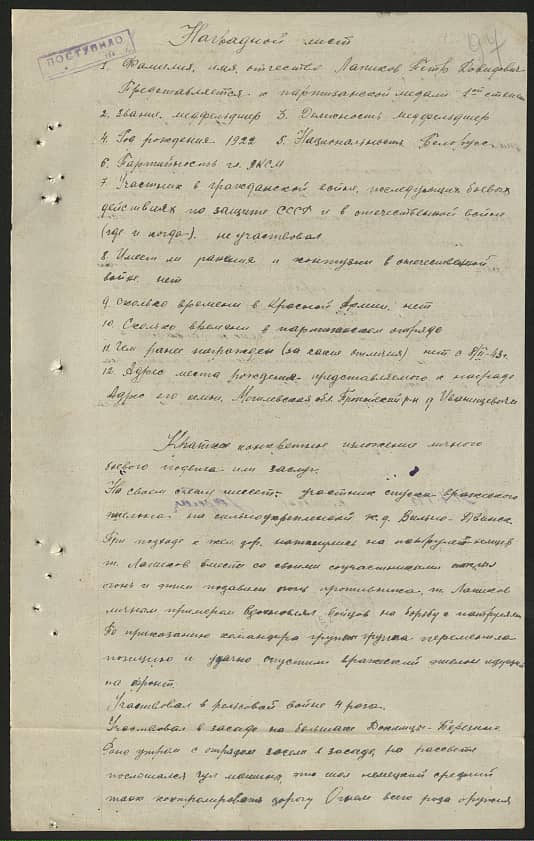 Наградной лист
97
ПОСТУПИЛО
1. Фамилия, имя, отчество Лапиков Петр Давидович
Представляется к партизанской медали 1ой степени
2. Звание медфельдшер 3. Должность медфельдшер
4. Год рождения 1922 5. Национальность Белорус
6. Партийность чл. ЛКСМ
7. Участник в гражданской войне, последующих боевых
действиях по защите СССР и в отечественной войне
(где и когда). не участвовал
8. Имеет ли ранения и контузии в отечественной
войне нет
9. Сколько времени в Красной Армии. нет
10. Сколько времени в партизанском отряде
11. Чем ранее награжден (за какие отличия) нет с 8/II-43г.
12. Адрес места рождения представляемого к награде
Адрес его семьи. Могилевская обл. р-н д
Кратко конкретное изложение личного
боевого подвига или заслуг.
На своем счету имеет: участник спуска вражеского
эшелона на сильноукрепленной ж.д. Вильно-Двинск.
При подходе к жел. дор. наткнулись на патруль немцев
т. Лапиков вместе со своими соучастниками открыл
огонь и этим подавили огонь противника, т. Лапиков
личным примером вдохновлял бойцов на борьбу с патрулем
По приказанию командира группы группа переменила
позицию и удачно спустили вражеский эшелон идущий
на фронт.
Участвовал в рельсовой войне 4 раза.
Участвовал в засаде на большаке Докшицы-Березино
Рано утром с отрядом засели в засаде, на рассвете
послышался гул машины, это шел немецкий средний
танк контролировать дорогу Огнем всего рода оружия